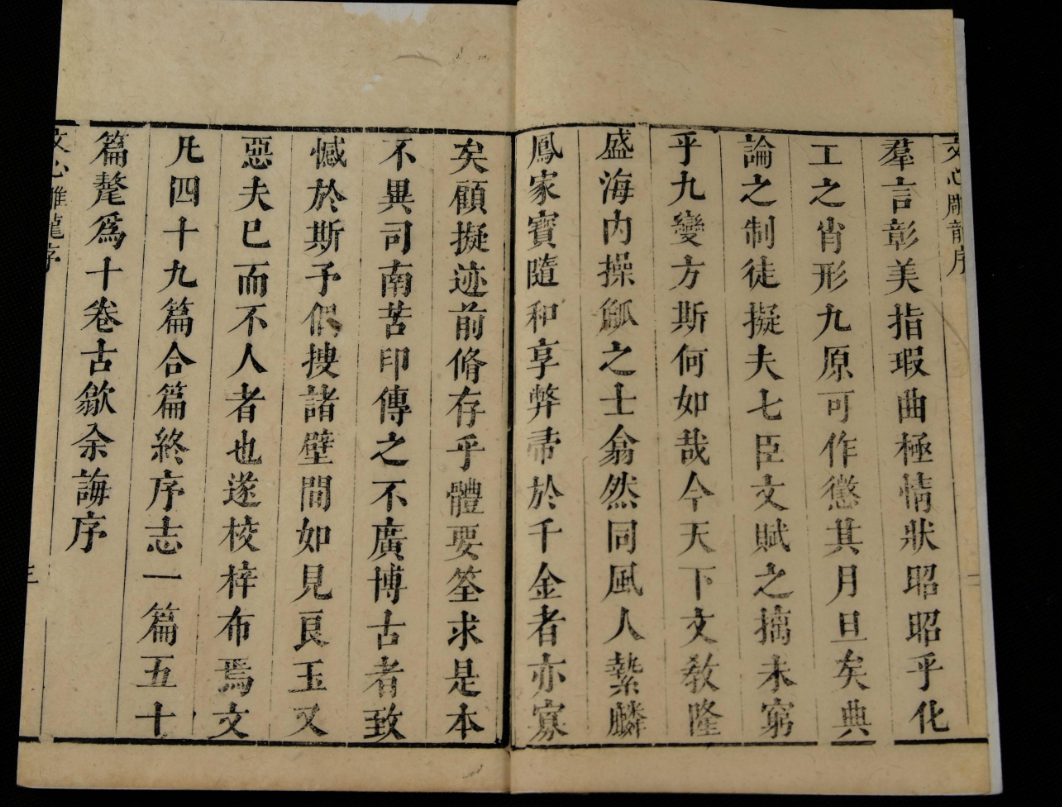 文心雕龍序
羣言彰美指瑕曲極情狀昭昭乎化
工之肖形九原可作懲其月旦矣典
論之制徒擬夫七臣文賦之摛未窮
乎九變方斯何如哉今天下文敎隆
盛海内操觚之士翕然同風人縶麟
鳳家寶隨和享弊帚於千金者亦寡
矣顧擬迹前脩存乎體要筌求是本
不異司南苦印傳之不廣博古者致
憾於斯予偶搜諸壁間如見良玉又
惡夫已而不人者也遂校梓布焉文
凡四十九篇合篇終序志一篇五十
篇釐爲十卷古歙余誨序
文心雕龍序
三